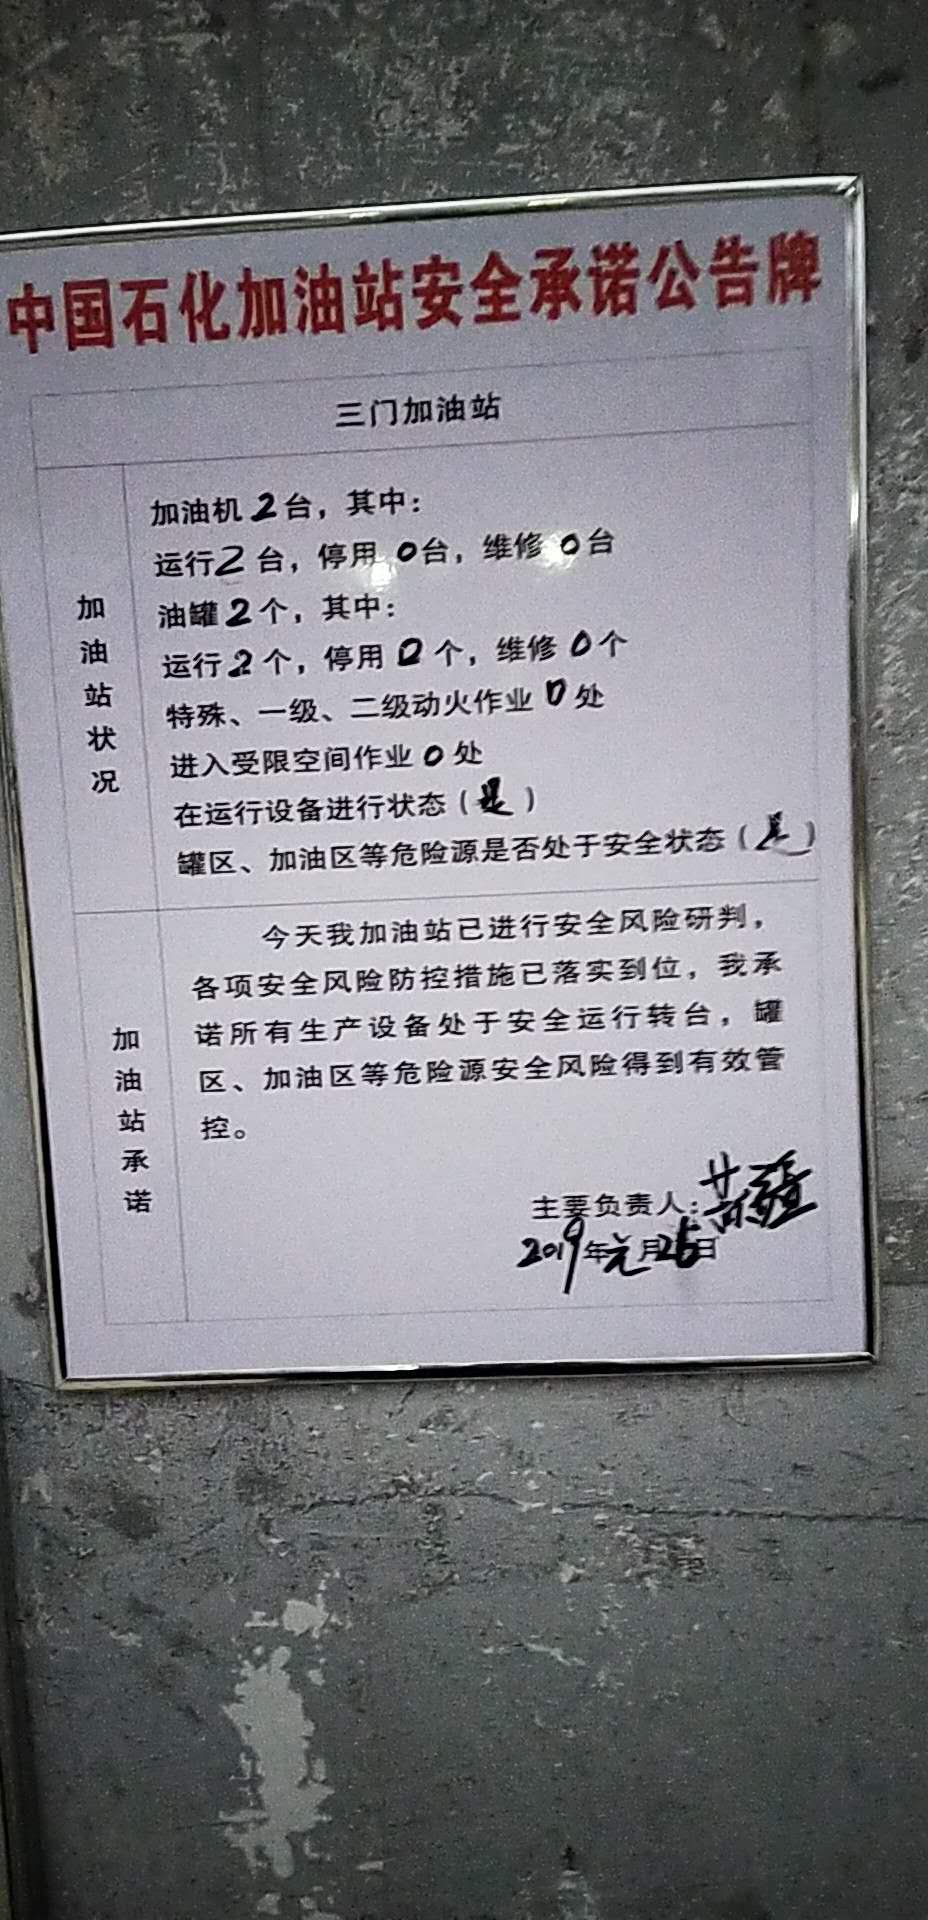 中国石化加油站安全承诺公告牌
三门加油站
加油站状况
加油机2台，其中：
运行2台，停用0台，维修0台
油罐2个，其中：
运行2个，停用0个，维修0个
特殊、一级、二级动火作业0处
进入受限空间作业0处
在运行设备进行状态（是）
罐区、加油区等危险源是否处于安全状态（是）
加油站承诺
今天我加油站已进行安全风险研判，
各项安全风险防控措施已落实到位，我承
诺所有生产设备处于安全运行转台，罐
区、加油区等危险源安全风险得到有效管
控。
主要负责人：
2019年元月26日